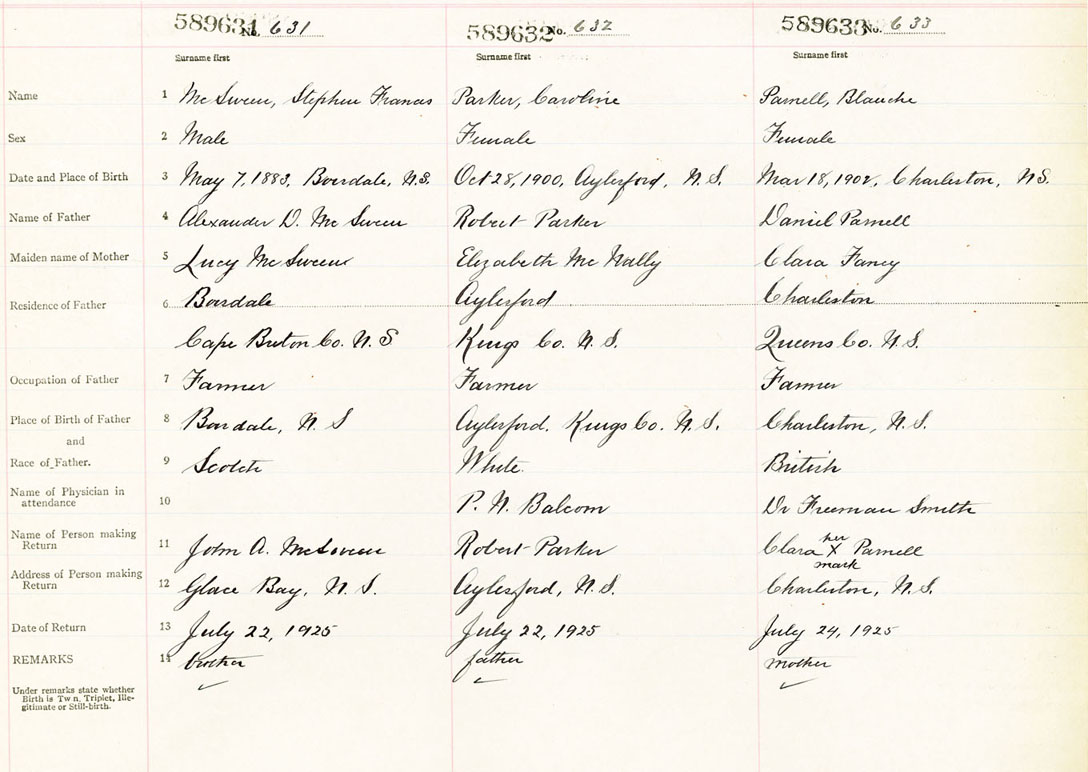 589631 No. 631 589632 No. 632 589633 No. 633
Surname first Surname first Surname first
Name 1 McSween, Stephen Francis Parker, Caroline Parnell, Blanche
Sex 2 Male Female Female
Date and Place of Birth 3 May 7, 1883, Boisdale, N.S. Oct 28, 1900, Aylesford, N.S. Mar 18, 1902, Charleston, NS.
Name of Father 4 Alexander D. McSween Robert Parker Daniel Parnell
Maiden name of Mother 5 Lucy McSween Elizabeth McNally Clara Fancy
Residence of Father 6 Boisdale Aylesford Charleston
Cape Breton Co. N.S Kings Co. N.S. Queens Co. N.S.
Occupation of Father 7 Farmer Farmer Farmer
Place of Birth of Father 8 Boisdale, N.S Aylesford, Kings Co. N.S. Charleston, N.S.
and
Race of Father. 9 Scotch White. British
Name of Physician in attendance 10 P. N. Balcom Dr Freeman Smith
Name of Person making Return 11 John A. McSween Robert Parker Clara her X mark Parnell
Address of Person making Return 12 Glace Bay, N.S. Aylesford, N.S. Charleston, N.S.
Date of Return 13 July 22, 1925 July 22, 1925 July 24, 1925
REMARKS 14 brother father mother
Under remarks state whether
Birth is Twin, Triplet, Ille-
gitimate or Still-birth.